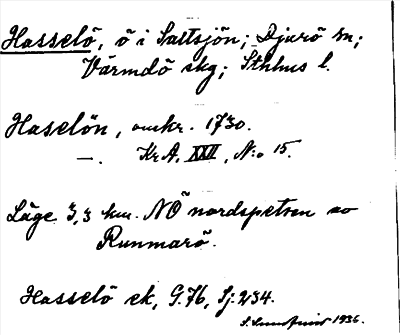 Hasselö, ö i Saltsjön; Djurö sn;
Värmdö skg; Sthlms l.
Haselön, omkr. 1730.
—. KrA, XXII, N:o 15.
Läge 3,3 km. NÖ nordspetsen av
Runmarö.
Hasselö ek, G.76, Sj. 234.
S. Sundqvist 1936.